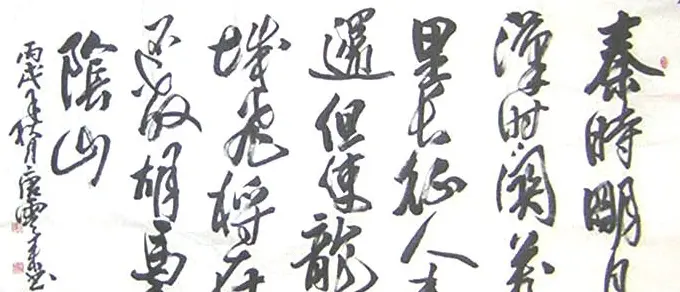 秦時明月
漢时關萬
里长征人未
還但使龍
城飛將在
不教胡馬
陰山
丙戌年秋月唐雲来书